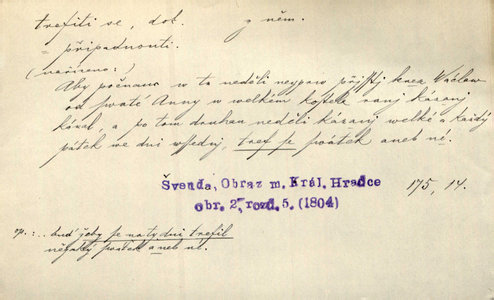 trefiti se, dok. z něm.
= připadnouti.
(nařízeno:)
Aby počnauc w tu neděli neyprw přjsstj knez Wáclaw
od swaté Anny w welkém kostele ranj kázanj
kázal, a po tom druhau neděli kázanj welké a každý
pátek we dni wssednj, tref se swátek aneb né.
Švenda, Obraz m. Král. Hradce 175, 14.
obr. 2, rozd. 5. (1804)
np.: buď jeby se na ty dni trefil
něfaký swátek aneb né.